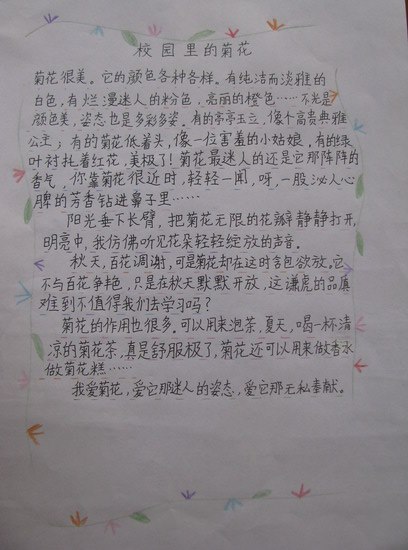 校园里的菊花
菊花很美。它的颜色各种各样。有纯洁而淡雅的
白色，有烂漫迷人的粉色，亮丽的橙色……不光是
颜色美，姿态也是多彩多姿，有的亭亭玉立，像个高贵典雅
公主；有的菊花低着头，像一位害羞的小姑娘，有的绿
叶衬托着红花，美极了！菊花最迷人的还是它那阵阵的
香气，你靠菊花很近时，轻轻一闻，呀，一股泌人心
脾的芳香钻进鼻子里……
阳光垂下长臂，把菊花无限的花瓣静静打开，
明亮中，我仿佛听见花朵轻轻绽放的声音。
秋天，百花凋谢，可是菊花却在这时含包欲放。它
不与百花争艳，只是在秋天默默开放，这谦虚的品质
难到不值得我们去学习吗？
菊花的作用也很多。可以用来泡茶，夏天，喝一杯清
凉的菊花茶，真是舒服极了，菊花还可以用来做香水
做菊花糕……
我爱菊花，爱它那迷人的姿态，爱它那无私奉献。